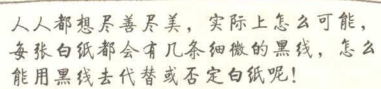 人人都想尽善尽美，实际上怎么可能，
每张白纸都会有几条细微的黑线，怎么
能用黑线去代替或否定白纸呢！